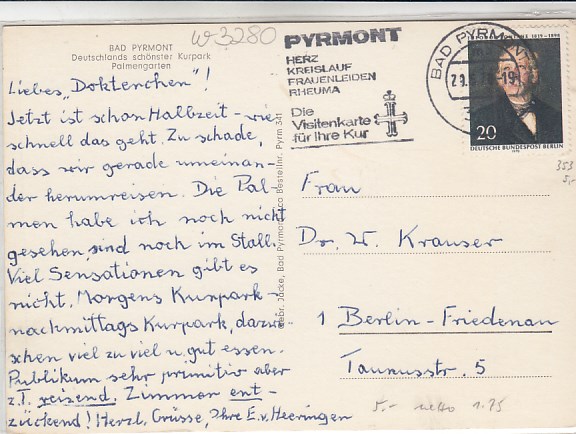 w 3280
BAD PYRMONT
Deutschlands schönster Kurpark
Palmengarten
Liebes „Doktenchen"!
Jetzt ist schon Halbzeit – wie
schnell das geht. Zu schade,
dass wir gerade umeinan-
der herumreisen. Die Pal-
men habe ich noch nicht
gesehen, sind noch im Stall.
Viel Sensationen gibt es
nicht. Morgens Kurpark –
nachmittags Kurpark, dazwi-
schen viel zu viel u. gut essen.
Publikum sehr primitiv aber
z.T. reisend. Zimmer ent-
zückend! Herzl. Grüsse, Ihre E. v. Heeringen
Gebr. Jäcke, Bad Pyrmont Bestellnr. Pyrm 341
PYRMONT
HERZ
KREISLAUF
FRAUENLEIDEN
RHEUMA
Die
Visitenkarte
für Ihre Kur
BAD PYRMONT
1819-1898
20
DEUTSCHE BUNDESPOST BERLIN
353
5,-
Frau
Dr. W. Krauser
1 Berlin-Friedenau
Taunusstr. 5
5,- netto 1.75